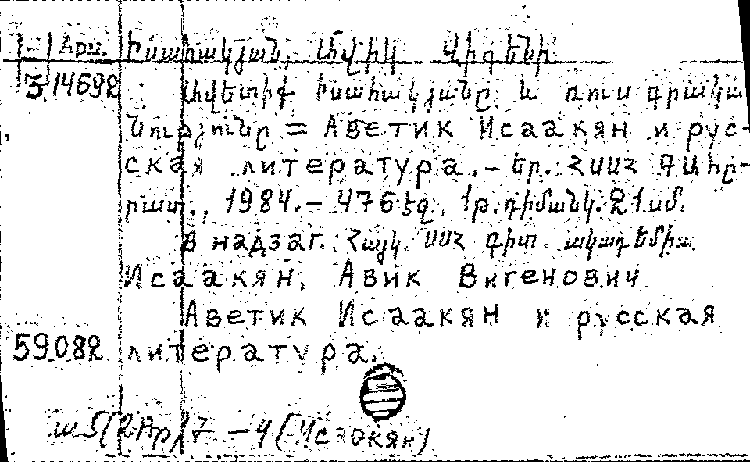 Арм. Իսահակյան, Ավիկ Վիգենի
3 14692 Ավետիք Իսահակյանը և ռուս գրակա-
նությունը = Аветик Исаакян и рус-
ская литература. – Եր.: ՀՍՍՀ ԳԱ հր-
րատ., 1984. – 476 էջ, 1 թ. դիմանկ. 21 սմ.
В надзаг. Հայկ. ՍՍՀ գիտ. ակադեմիա
Исаакян, Авик Вигенович
Аветик Исаакян и русская
59.082 литература.
ш5(2Ар)7 – 4 (Исаакян)